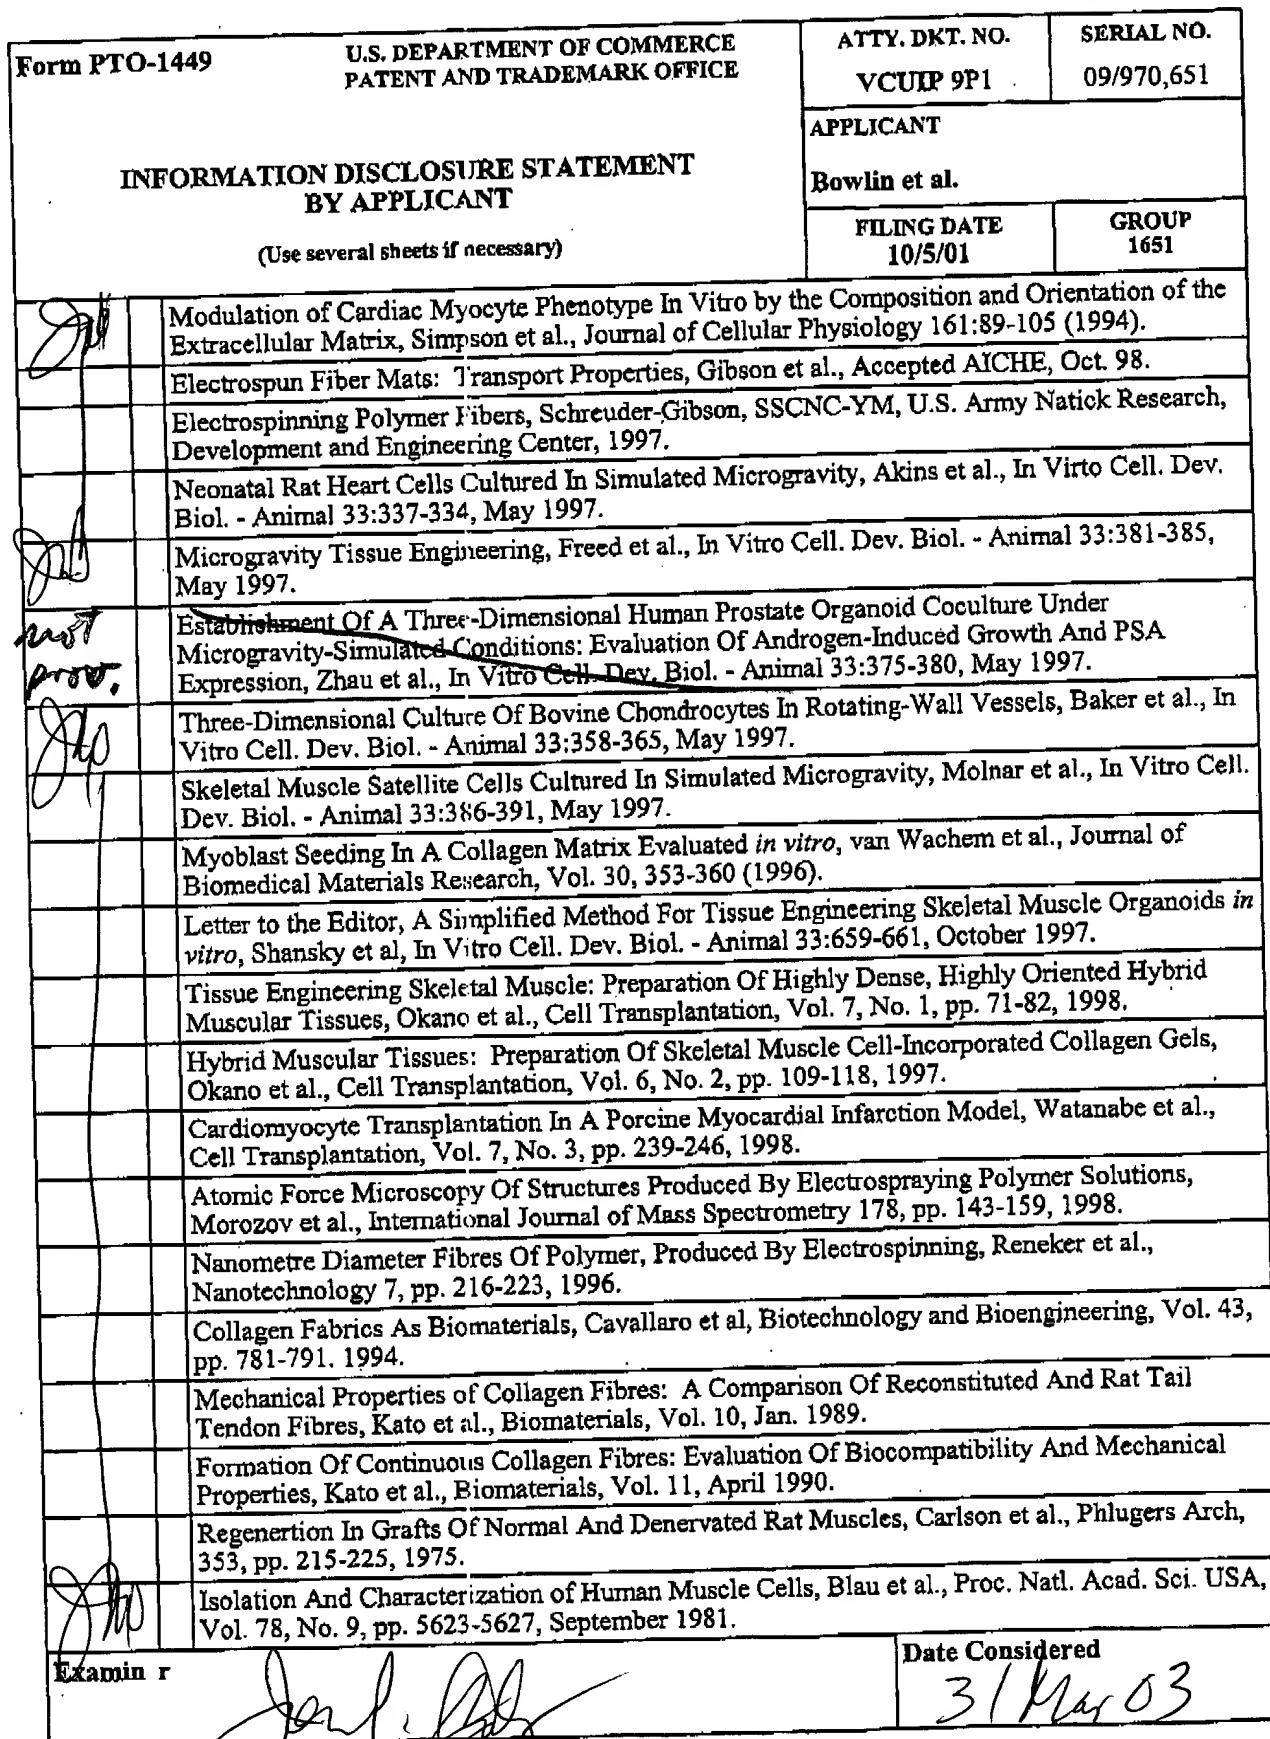 Form PTO-1449
U.S. DEPARTMENT OF COMMERCE
PATENT AND TRADEMARK OFFICE
ATTY. DKT. NO.
VCUIP 9P1
SERIAL NO.
09/970,651
INFORMATION DISCLOSURE STATEMENT
BY APPLICANT
(Use several sheets if necessary)
APPLICANT
Bowlin et al.
FILING DATE
10/5/01
GROUP
1651
Modulation of Cardiac Myocyte Phenotype In Vitro by the Composition and Orientation of the
Extracellular Matrix, Simpson et al., Journal of Cellular Physiology 161:89-105 (1994).
Electrospun Fiber Mats: Transport Properties, Gibson et al., Accepted AICHE, Oct. 98.
Electrospinning Polymer Fibers, Schreuder-Gibson, SSCNC-YM, U.S. Army Natick Research,
Development and Engineering Center, 1997.
Neonatal Rat Heart Cells Cultured In Simulated Microgravity, Akins et al., In Virto Cell. Dev.
Biol. - Animal 33:337-334, May 1997.
Microgravity Tissue Engineering, Freed et al., In Vitro Cell. Dev. Biol. - Animal 33:381-385,
May 1997.
not
prov.
Establishment Of A Three-Dimensional Human Prostate Organoid Coculture Under
Microgravity-Simulated Conditions: Evaluation Of Androgen-Induced Growth And PSA
Expression, Zhau et al., In Vitro Cell. Dev. Biol. - Animal 33:375-380, May 1997.
Three-Dimensional Culture Of Bovine Chondrocytes In Rotating-Wall Vessels, Baker et al., In
Vitro Cell. Dev. Biol. - Animal 33:358-365, May 1997.
Skeletal Muscle Satellite Cells Cultured In Simulated Microgravity, Molnar et al., In Vitro Cell.
Dev. Biol. - Animal 33:386-391, May 1997.
Myoblast Seeding In A Collagen Matrix Evaluated in vitro, van Wachem et al., Journal of
Biomedical Materials Research, Vol. 30, 353-360 (1996).
Letter to the Editor, A Simplified Method For Tissue Engineering Skeletal Muscle Organoids in
vitro, Shansky et al, In Vitro Cell. Dev. Biol. - Animal 33:659-661, October 1997.
Tissue Engineering Skeletal Muscle: Preparation Of Highly Dense, Highly Oriented Hybrid
Muscular Tissues, Okano et al., Cell Transplantation, Vol. 7, No. 1, pp. 71-82, 1998.
Hybrid Muscular Tissues: Preparation Of Skeletal Muscle Cell-Incorporated Collagen Gels,
Okano et al., Cell Transplantation, Vol. 6, No. 2, pp. 109-118, 1997.
Cardiomyocyte Transplantation In A Porcine Myocardial Infarction Model, Watanabe et al.,
Cell Transplantation, Vol. 7, No. 3, pp. 239-246, 1998.
Atomic Force Microscopy Of Structures Produced By Electrospraying Polymer Solutions,
Morozov et al., International Journal of Mass Spectrometry 178, pp. 143-159, 1998.
Nanometre Diameter Fibres Of Polymer, Produced By Electrospinning, Reneker et al.,
Nanotechnology 7, pp. 216-223, 1996.
Collagen Fabrics As Biomaterials, Cavallaro et al, Biotechnology and Bioengineering, Vol. 43,
pp. 781-791. 1994.
Mechanical Properties of Collagen Fibres: A Comparison Of Reconstituted And Rat Tail
Tendon Fibres, Kato et al., Biomaterials, Vol. 10, Jan. 1989.
Formation Of Continuous Collagen Fibres: Evaluation Of Biocompatibility And Mechanical
Properties, Kato et al., Biomaterials, Vol. 11, April 1990.
Regenertion In Grafts Of Normal And Denervated Rat Muscles, Carlson et al., Phlugers Arch,
353, pp. 215-225, 1975.
Isolation And Characterization of Human Muscle Cells, Blau et al., Proc. Natl. Acad. Sci. USA,
Vol. 78, No. 9, pp. 5623-5627, September 1981.
Examin r
Date Considered
31 Mar 03